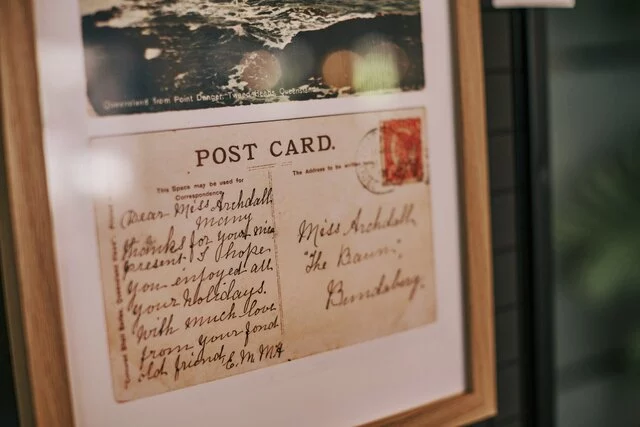 Queensland from Point Danger, Tweed Heads, Queensland
POST CARD.
This Space may be used for
Correspondence
The Address to be written
Dear Miss Archdall,
Many
thanks for your nice
present I hope
you enjoyed all
your holidays.
With much love
from your fond
old friend, E.M MA
Miss Archdall,
"The Baum",
Bundaberg.